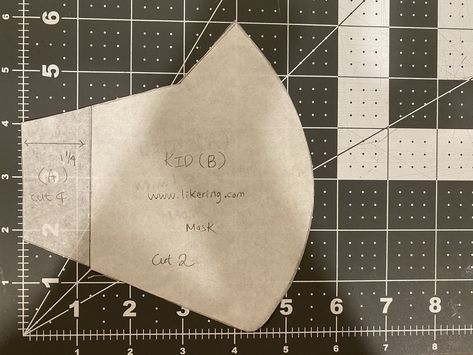 6
5
4
3
2
1
1 1/4
(A)
cut 4
KID (B)
www.likering.com
Mask
Cut 2
1 2 3 4 5 6 7 8